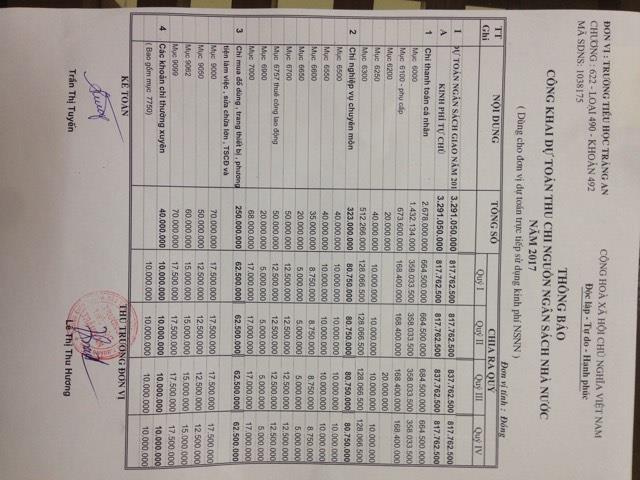 ĐƠN VỊ : TRƯỜNG TIỂU HỌC TRÀNG AN
CHƯƠNG : 622 - LOẠI 490 - KHOẢN 492
MÃ SDNS: 1038175
CỘNG HOÀ XÃ HỘI CHỦ NGHĨA VIỆT NAM
Độc lập - Tự do - Hạnh phúc
THÔNG BÁO
CÔNG KHAI DỰ TOÁN THU CHI NGUỒN NGÂN SÁCH NHÀ NƯỚC
NĂM 2017
( Dùng cho đơn vị dự toán trực tiếp sử dụng kinh phí NSNN )
Đơn vị tính : Đồng
TT Ghi NỘI DUNG TỔNG SỐ CHIA RA QUÝ
Quý I Quý II Quý III Quý IV
I DỰ TOÁN NGÂN SÁCH GIAO NĂM 201 3.291.050.000 817.762.500 817.762.500 837.762.500 817.762.500
A KINH PHÍ TỰ CHỦ 3.291.050.000 817.762.500 817.762.500 837.762.500 817.762.500
1 Chi thanh toán cá nhân 2.678.000.000 664.500.000 664.500.000 684.500.000 664.500.000
Mục 6000 1.432.134.000 358.033.500 358.033.500 358.033.500 358.033.500
Mục 6100 - phụ cấp 673.600.000 168.400.000 168.400.000 168.400.000 168.400.000
Mục 6200 20.000.000 20.000.000
Mục 6250 40.000.000 10.000.000 10.000.000 10.000.000 10.000.000
Mục 6300 512.266.000 128.066.500 128.066.500 128.066.500 128.066.500
2 Chi nghiệp vụ chuyên môn 323.000.000 80.750.000 80.750.000 80.750.000 80.750.000
Mục 6500 40.000.000 10.000.000 10.000.000 10.000.000 10.000.000
Mục 6550 40.000.000 10.000.000 10.000.000 10.000.000 10.000.000
Mục 6600 35.000.000 8.750.000 8.750.000 8.750.000 8.750.000
Mục 6650 20.000.000 5.000.000 5.000.000 5.000.000 5.000.000
Mục 6700 50.000.000 12.500.000 12.500.000 12.500.000 12.500.000
Mục 6757 thuê công lao động 50.000.000 12.500.000 12.500.000 12.500.000 12.500.000
Mục 6900 20.000.000 5.000.000 5.000.000 5.000.000 5.000.000
Mục 7000 68.000.000 17.000.000 17.000.000 17.000.000 17.000.000
3 Chi mua đồ dùng , trang thiết bị , phương tiện làm việc , sửa chữa lớn , TSCĐ và 250.000.000 62.500.000 62.500.000 62.500.000 62.500.000
Mục 9000 70.000.000 17.500.000 17.500.000 17.500.000 17.500.000
Mục 9050 50.000.000 12.500.000 12.500.000 12.500.000 12.500.000
Mục 9062 60.000.000 15.000.000 15.000.000 15.000.000 15.000.000
Mục 9099 70.000.000 17.500.000 17.500.000 17.500.000 17.500.000
4 Các khoản chi thường xuyên 40.000.000 10.000.000 10.000.000 10.000.000 10.000.000
( Bao gồm mục 7750) 10.000.000 10.000.000 10.000.000 10.000.000
KẾ TOÁN
THỦ TRƯỞNG ĐƠN VỊ
Trần Thị Tuyến
Lê Thị Thu Hương